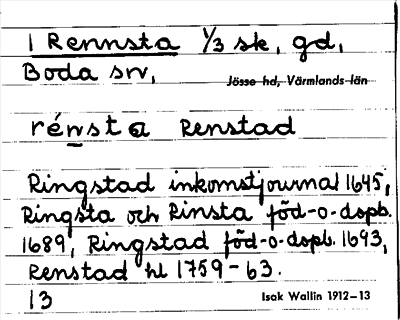 1 Rennsta 1/3 sk, gd,
Boda sn,
Jösse hd, Värmlands län
rénsta Renstad
Ringstad inkomstjournal 1645,
Ringsta och Rinsta föd-o-dopb.
1689, Ringstad föd-o-dopb. 1693,
Renstad hl 1759-63.
13
Isak Wallin 1912–13